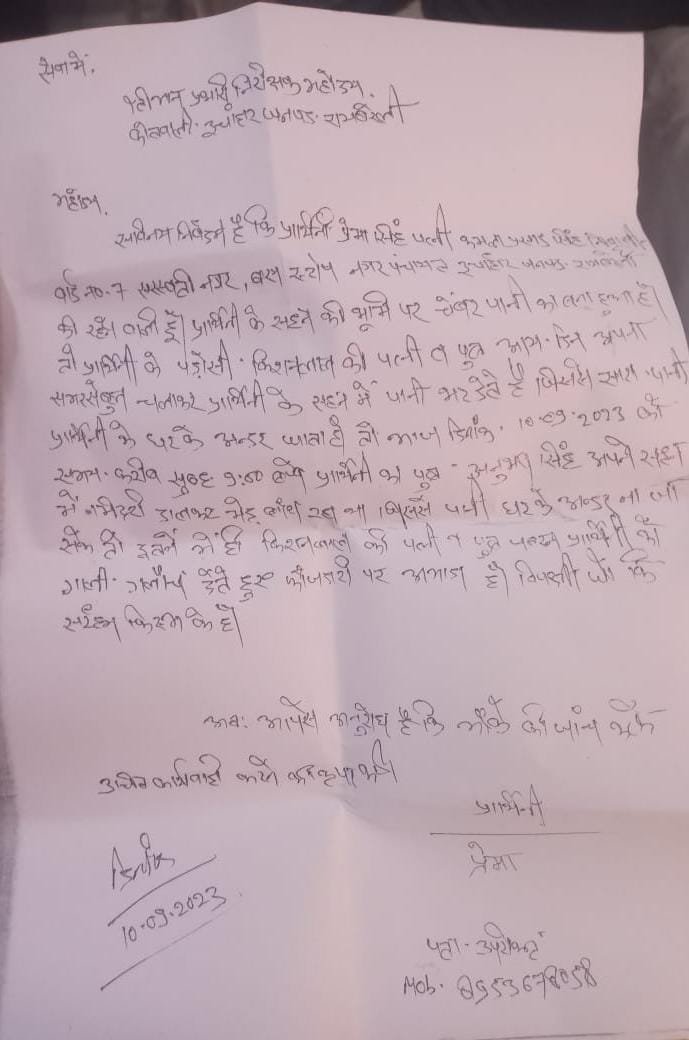 सेवा में,
श्रीमान् प्रभारी निरीक्षक महोदय,
कोतवाली- ऊंचाहार जनपद- रायबरेली
महोदय,
सविनय निवेदन है कि प्रार्थिनी प्रेमा सिंह पत्नी कमता प्रसाद सिंह निवासिनी
वार्ड no-7 सरस्वती नगर, बस स्टाप नगर पंचायत ऊंचाहार जनपद- रायबरेली
की रहने वाली है। प्रार्थिनी के सहन की भूमि पर चेंबर पानी का बना हुआ है।
तो प्रार्थिनी के पड़ोसी- किशनलाल की पत्नी व पुत्र आय-दिन अपना
चलाकर प्रार्थिनी के सहन में पानी भर देते है जिससे सारा पानी
प्रार्थिनी के घर के अन्दर जाता है तो आज दिनांक- 10-09-2023 को
समय- करीब सुबह 9:00 बजे प्रार्थिनी का पुत्र- अनुभव सिंह अपने सहन
में डालकर मेड़ बांध रहा था जिससे पानी घर के अन्दर ना जा
सके तो इतने में ही किशनलाल की पत्नी व पुत्र प्रार्थिनी को
गाली- गलौच देते हुए फौजदारी पर अमादा है। विपक्षी जो कि
सरहंग किस्म के है।
अतः आपसे अनुरोध है कि मौके की जांच करके
उचित कार्यवाही करने की कृपा करें।
प्रार्थिनी
प्रेमा
दिनांक
10-09-2023
पता- उपरोक्त
Mob- 8953678058